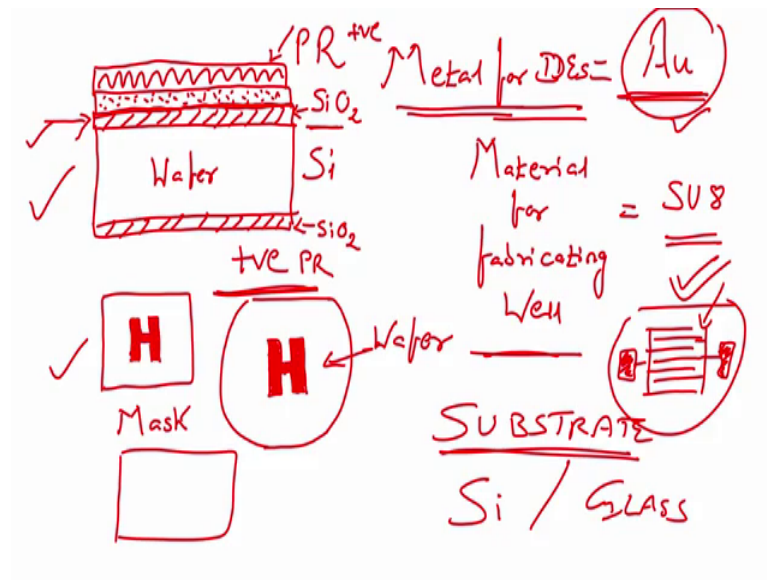 PR +ve
SiO2
Wafer
Si
SiO2
+ve PR
H
H
Wafer
Mask
Metal for IDEs = Au
Material
for
fabricating
Well
= SU8
SUBSTRATE
Si / GLASS